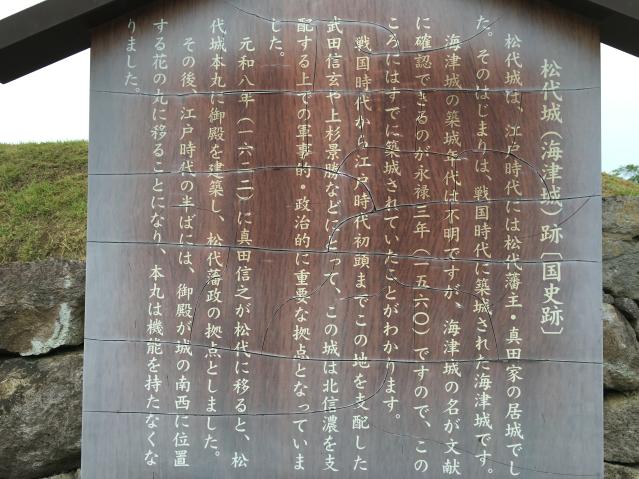 松代城(海津城)跡〔国史跡〕
松代城は、江戸時代には松代藩主・真田家の居城でし
た。そのはじまりは、戦国時代に築城された海津城です。
海津城の築城年代は不明ですが、海津城の名が文献
に確認できるのが永禄三年(一五六〇)ですので、この
ころにはすでに築城されていたことがわかります。
戦国時代から江戸時代初頭までこの地を支配した
武田信玄や上杉景勝などにとって、この城は北信濃を支
配する上での軍事的・政治的に重要な拠点となっていま
した。
元和八年(一六二二)に真田信之が松代に移ると、松
代城本丸に御殿を建築し、松代藩政の拠点としました。
その後、江戸時代の半ばには、御殿が城の南西に位置
する花の丸に移ることになり、本丸は機能を持たなくな
りました。